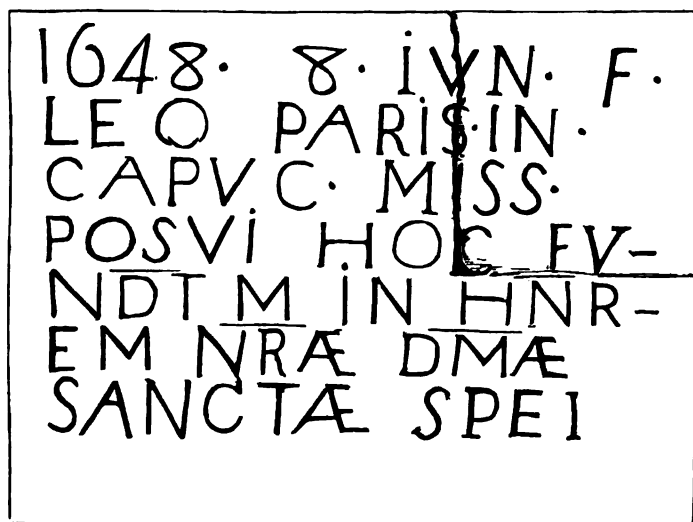 1648· 8· IVN· F·
LEO PARIS·IN·
CAPVC· MISS·
POSVI HOC FV-
NDT M IN HNR-
EM NRÆ DMÆ
SANCTÆ SPEI